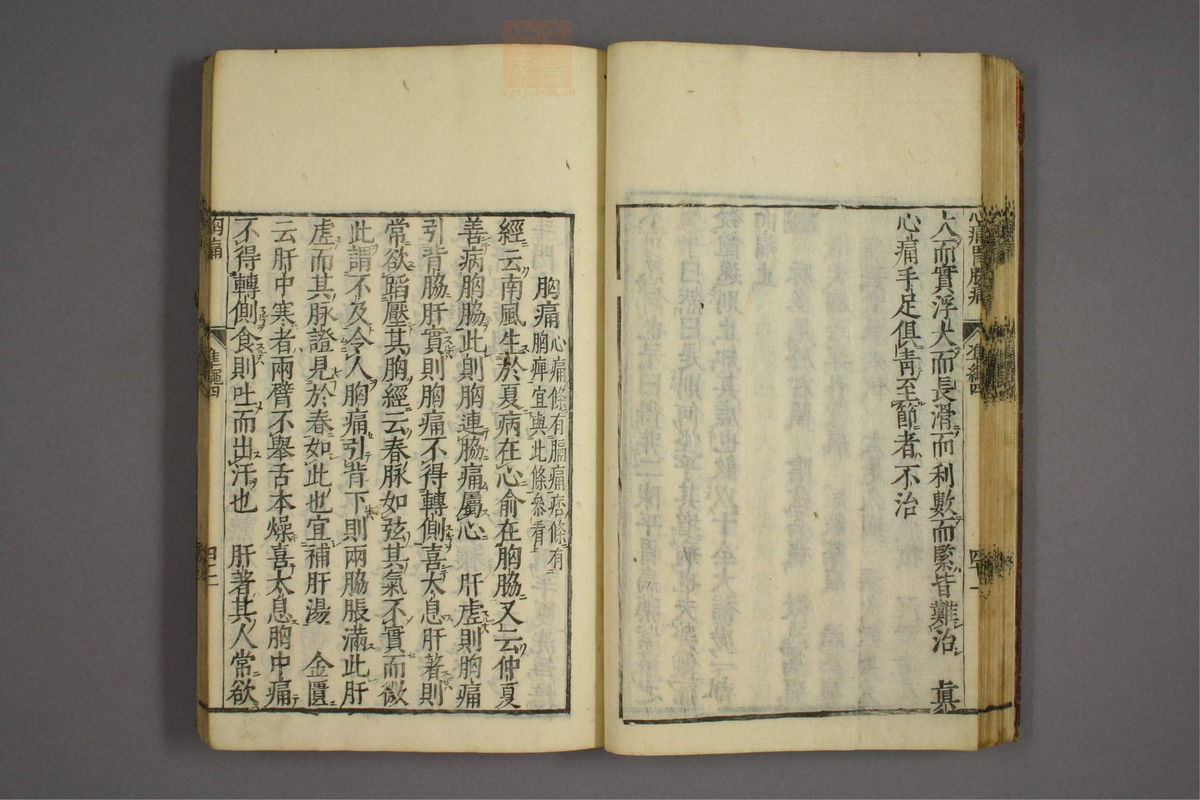 大而實浮大而長滑而利數而緊皆難治　眞
心痛手足俱靑至節者不治
胸痛
心痛條有膈痛痞條有
胸痺宜與此條參看
經云南風生於夏病在心俞在胸脇又云仲夏
善病胸脇此則胸連脇痛屬心　肝虛則胸痛
引背脇肝實則胸痛不得轉側喜太息肝著則
常欲蹈壓其胸經云春脉如弦其氣不實而微
此謂不及令人胸痛引背下則兩脇脹滿此肝
虛而其脉證見於春如此也宜補肝湯　金匱
云肝中寒者兩臂不舉舌本燥喜太息胸中痛
不得轉側食則吐而出汗也　肝著其人常欲
胸痛
準繩四
四十二
zysj.com.cn